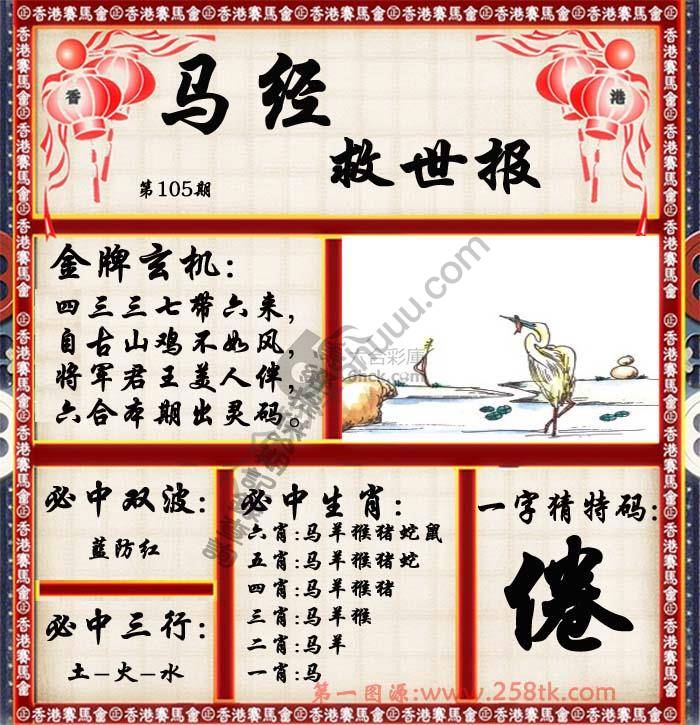 香
港
马经
救世报
第105期
金牌玄机:
四三三七带六来,
自古山鸡不如风,
将军君王美人伴,
六合本期出灵码。
必中双波:
蓝防红
必中三行:
土-火-水
必中生肖:
六肖:马羊猴猪蛇鼠
五肖:马羊猴猪蛇
四肖:马羊猴猪
三肖:马羊猴
二肖:马羊
一肖:马
一字猜特码:
倦
第一图源:www.258tk.com
香港賽馬會